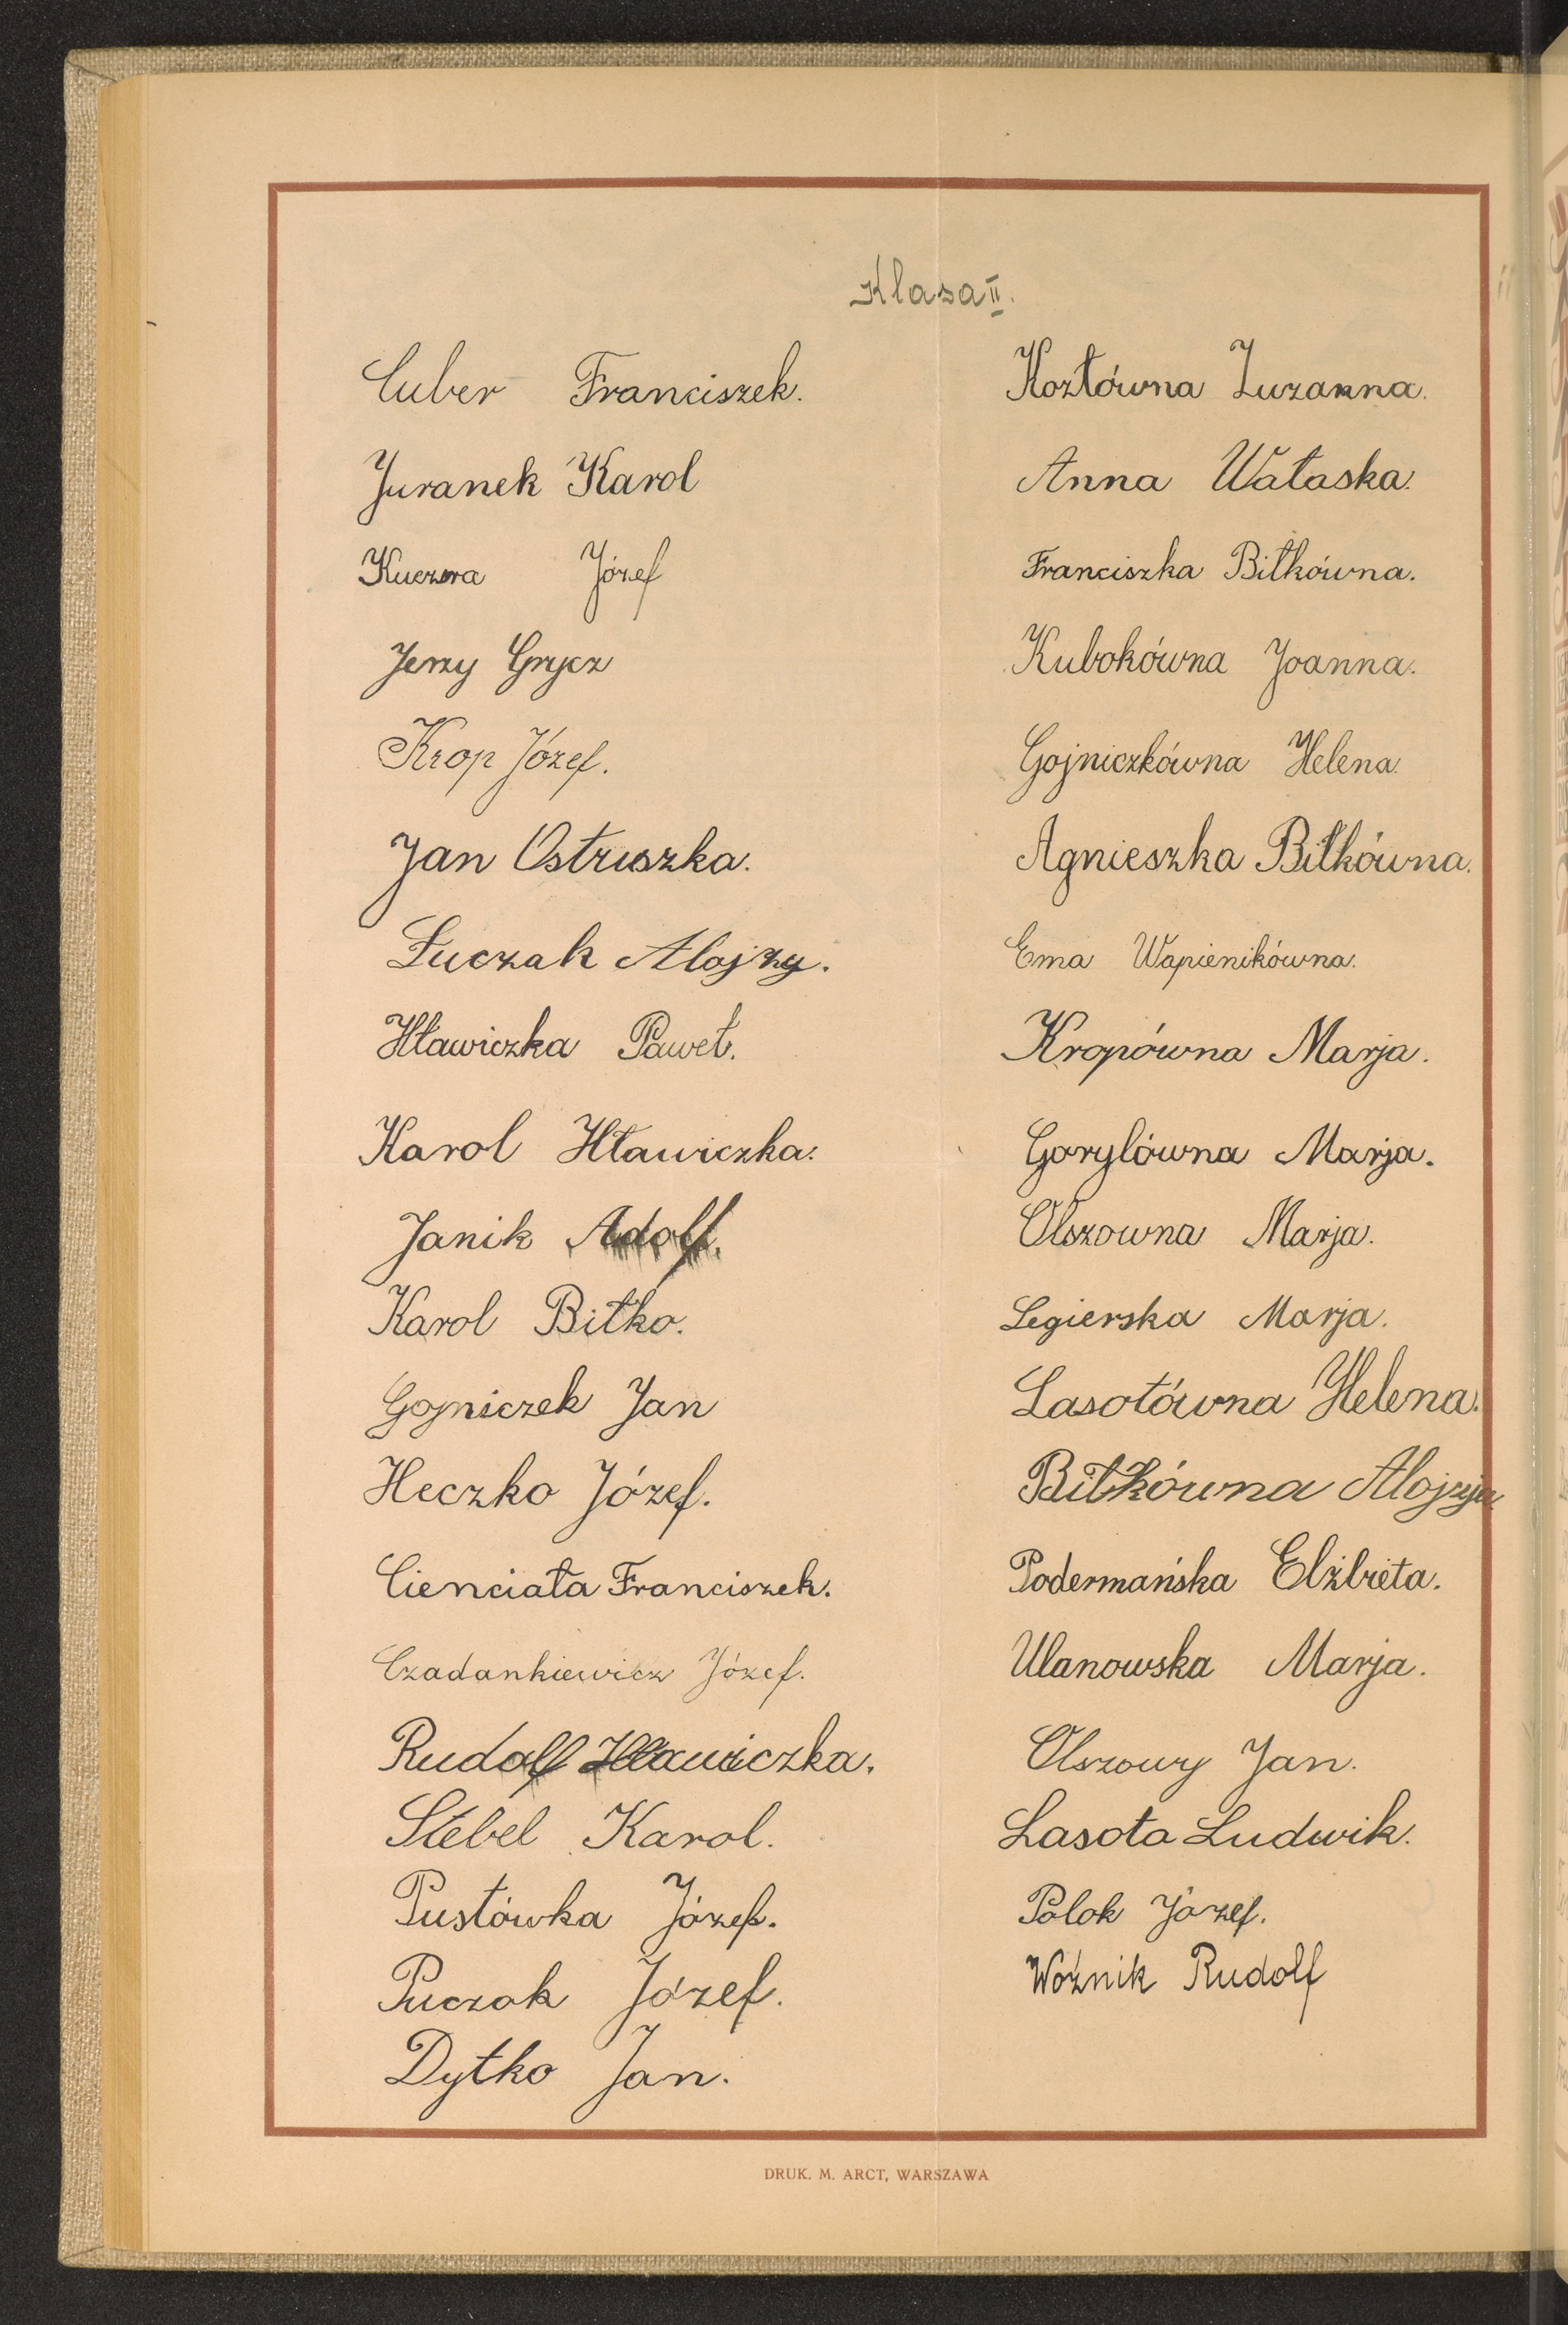 Klasa II.
Cuber Franciszek.
Juranek Karol
Kuczera Józef
Jerzy Grycz
Krop Józef.
Jan Ostruszka.
Łuczak Alojzy.
Hławiczka Paweł.
Karol Hławiczka.
Janik Adolf.
Karol Biłko.
Gojniczek Jan
Heczko Józef.
Cienciała Franciszek.
Czadankiewicz Józef.
Rudolf Hławiczka.
Stebel Karol.
Pustówka Józef.
Puczok Józef.
Dytko Jan.
Kozłówna Zuzanna.
Anna Wałaska.
Franciszka Biłkówna.
Kubokówna Joanna.
Gojniczkówna Helena.
Agnieszka Biłkówna.
Ema Wapienikówna.
Kropówna Marja.
Gorylówna Marja.
Olszowna Marja.
Legierska Marja.
Lasotówna Helena.
Biłkówna Alojzja.
Podermańska Elżbieta.
Ulanowska Marja.
Olszowy Jan.
Lasota Ludwik.
Polok Józef.
Woźnik Rudolf
DRUK. M. ARCT, WARSZAWA